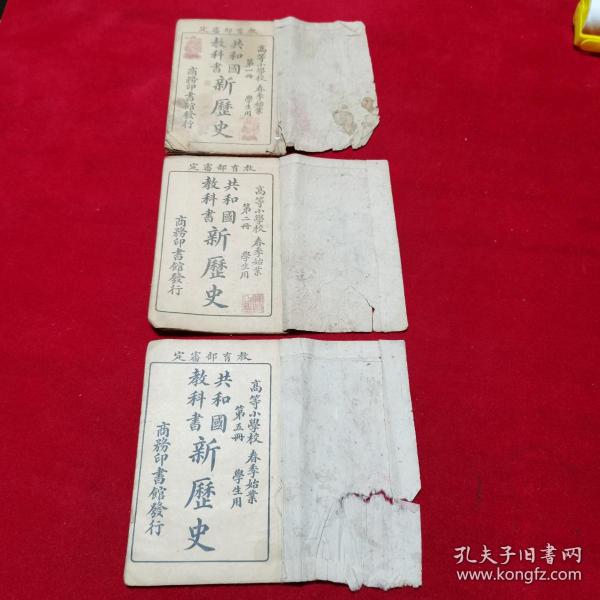 教育部審定
高等小學校 春季始業
第一冊 學生用
共和國
教科書
新歷史
商務印書館發行
教育部審定
高等小學校 春季始業
第二冊 學生用
共和國
教科書
新歷史
商務印書館發行
教育部審定
高等小學校 春季始業
第五冊 學生用
共和國
教科書
新歷史
商務印書館發行
孔夫子旧书网
www.kongfz.com